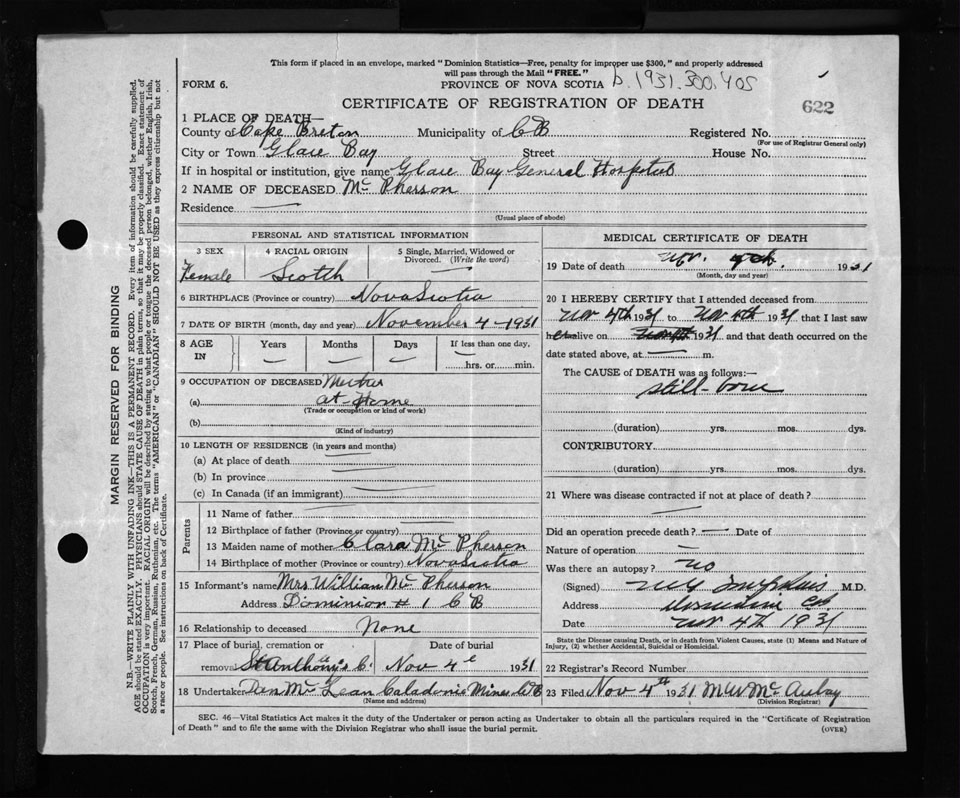 This form if placed in an envelope, marked "Dominion Statistics—Free, penalty for improper use $300," and properly addressed
will pass through the Mail "FREE."
FORM 6.
PROVINCE OF NOVA SCOTIA b. 1931.300.405
CERTIFICATE OF REGISTRATION OF DEATH
622
1 PLACE OF DEATH—
County of Cape Breton Municipality of CB Registered No.
(For use of Registrar General only)
City or Town Glace Bay Street House No.
If in hospital or institution, give name Glace Bay General Hospital
2 NAME OF DECEASED Mc Pherson
Residence —
(Usual place of abode)
PERSONAL AND STATISTICAL INFORMATION
3 SEX 4 RACIAL ORIGIN 5 Single, Married, Widowed or Divorced. (Write the word)
Female Scotch —
6 BIRTHPLACE (Province or country) Nova Scotia
7 DATE OF BIRTH (month, day and year) November 4 - 1931
8 AGE IN Years Months Days If less than one day,
— — — — hrs. or min.
9 OCCUPATION OF DECEASED Mother
(a) at Home
(Trade or occupation or kind of work)
(b)
(Kind of industry)
10 LENGTH OF RESIDENCE (in years and months)
(a) At place of death —
(b) In province —
(c) In Canada (if an immigrant) —
Parents
11 Name of father —
12 Birthplace of father (Province or country) —
13 Maiden name of mother Clara Mc Pherson
14 Birthplace of mother Nova Scotia
15 Informant's name Mrs William Mc Pherson
Address Dominion # 1 C B
16 Relationship to deceased None
17 Place of burial, cremation or removal St Anthony's C. Date of burial Nov 4 1931
18 Undertaker Dan Mc Lean Caladonia Mines C B
(Name and address)
MEDICAL CERTIFICATE OF DEATH
19 Date of death Nov. 4th. 1931
(Month, day and year)
20 I HEREBY CERTIFY that I attended deceased from
Nov 4th 1931 to Nov 4th 1931 that I last saw
her alive on 1931 and that death occurred on the
date stated above, at — m.
The CAUSE of DEATH was as follows:—
still-born
(duration) yrs. mos. dys.
CONTRIBUTORY
(duration) yrs. mos. dys.
21 Where was disease contracted if not at place of death?
—
Did an operation precede death? — Date of
Nature of operation —
Was there an autopsy? no
(Signed) M.D.
Address
Date Nov 4th 1931
State the Disease causing Death, or in death from Violent Causes, state (1) Means and Nature of
Injury, (2) whether Accidental, Suicidal or Homicidal.
22 Registrar's Record Number
23 Filed Nov 4th 1931 M W Mc Aulay
(Division Registrar)
SEC. 46—Vital Statistics Act makes it the duty of the Undertaker or person acting as Undertaker to obtain all the particulars required in the "Certificate of Registration
of Death" and to file the same with the Division Registrar who shall issue the burial permit.
(OVER)
MARGIN RESERVED FOR BINDING
N.B.—WRITE PLAINLY WITH UNFADING INK—THIS IS A PERMANENT RECORD. Every item of information should be carefully supplied.
AGE should be stated EXACTLY. PHYSICIANS should STATE CAUSE OF DEATH in plain terms, so that it may be properly classified. Exact statement of
OCCUPATION is very important. RACIAL ORIGIN will be described by stating to what people or tongue the deceased person belonged, whether English, Irish,
Scotch, French, German, Russian, Ruthenian, etc. The terms "AMERICAN" or "CANADIAN" SHOULD NOT BE USED as they express citizenship but not
a race or people. See instructions on back of Certificate.